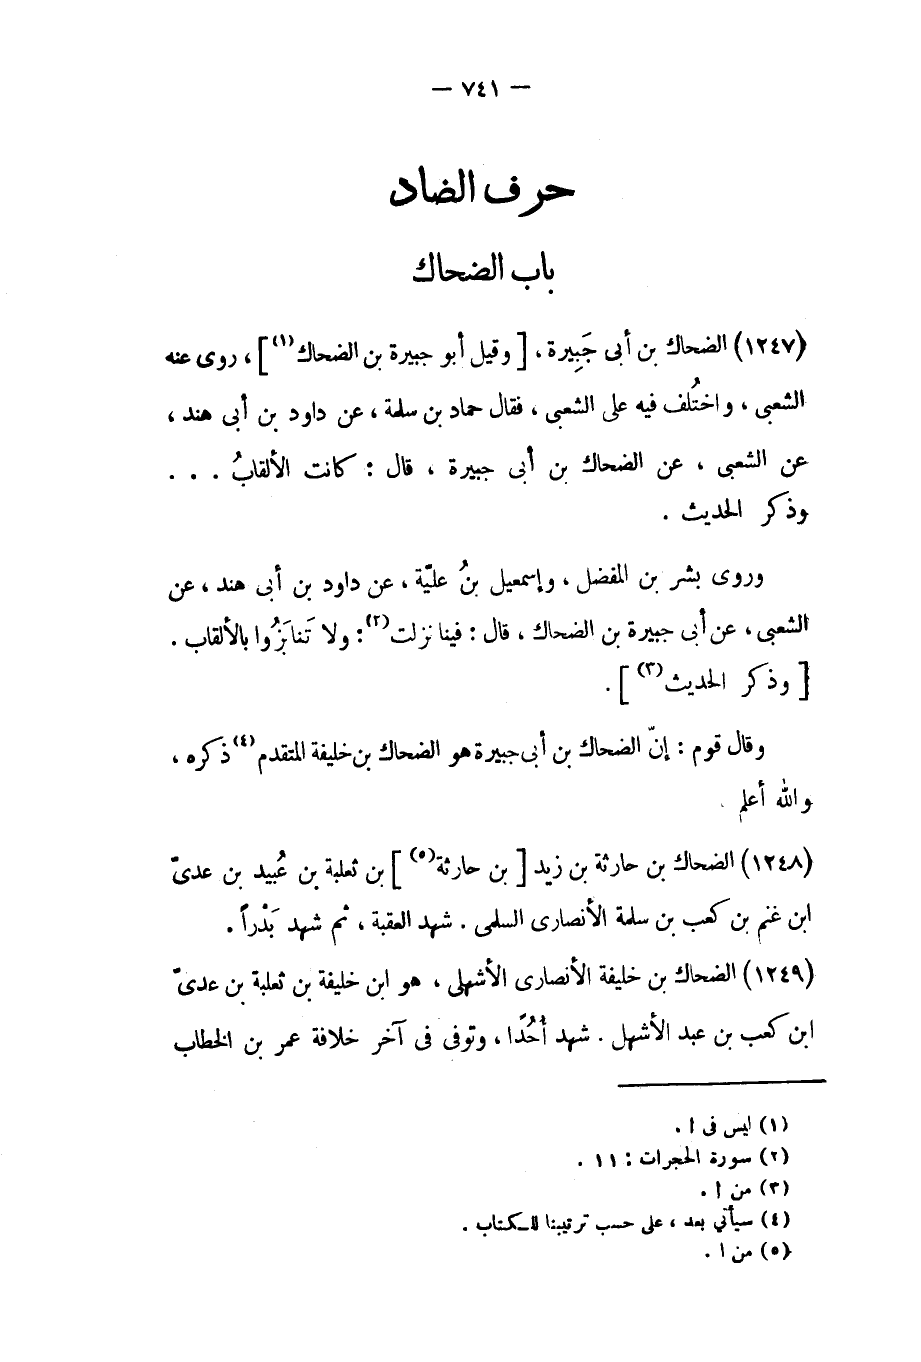 — ٧٤١ —
حرف الضاد
باب الضحاك
(١٢٤٧) الضحاك بن أبى جَبِيرة ، [ وقيل أبو جبيرة بن الضحاك(١) ] ، روى عنه
الشعبى ، واختُلف فيه على الشعبى ، فقال حماد بن سلمة ، عن داود بن أبى هند ،
عن الشعبى ، عن الضحاك بن أبى جبيرة ، قال : كانت الألقابُ . . .
وذكر الحديث .
وروى بشر بن المفضل ، وإسمعيل بنُ عليّة ، عن داود بن أبى هند ، عن
الشعبى ، عن أبى جبيرة بن الضحاك ، قال : فينا نزلت(٢) : ولا تَنابَزُوا بالألقاب .
[ وذكر الحديث(٣) ] .
وقال قوم : إنّ الضحاك بن أبى جبيرة هو الضحاك بن خليفة المتقدم(٤) ذكره ،
والله أعلم .
(١٢٤٨) الضحاك بن حارثة بن زيد [ بن حارثة(٥) ] بن ثعلبة بن عُبيد بن عدىّ
ابن غنم بن كعب بن سلمة الأنصارى السلمى . شهد العقبة ، ثم شهد بَدْراً .
(١٢٤٩) الضحاك بن خليفة الأنصارى الأشهلى ، هو ابن خليفة بن ثعلبة بن عدىّ
ابن كعب بن عبد الأشهل . شهد أُحُدًا ، وتوفى فى آخر خلافة عمر بن الخطاب
(١) ليس فى ا .
(٢) سورة الحجرات : ١١ .
(٣) من ا .
(٤) سيأتي بعد ، على حسب ترتيبنا للكتاب .
(٥) من ا .